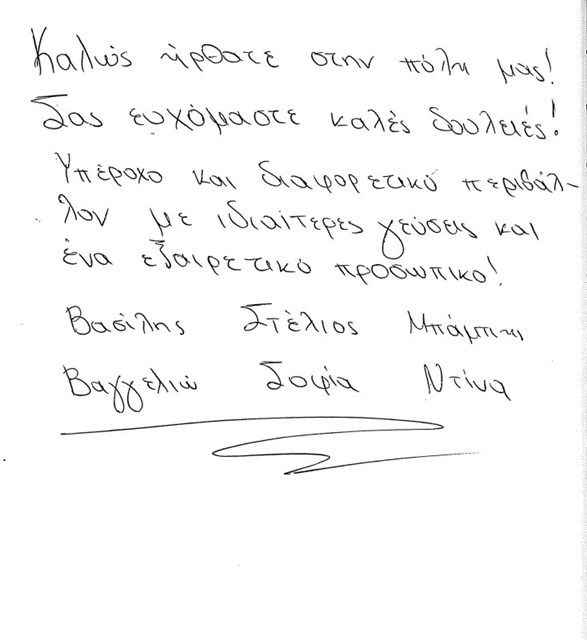 Καλώς ήρθατε στην πόλη μας!
Σας ευχόμαστε καλές δουλειές!
Υπέροχο και διαφορετικό περιβάλ-
λον με ιδιαίτερες γεύσεις και
ένα εξαιρετικό προσωπικο!
Βασίλης Στέλιος Μπάμπης
Βαγγελιώ Σοφία Ντίνα